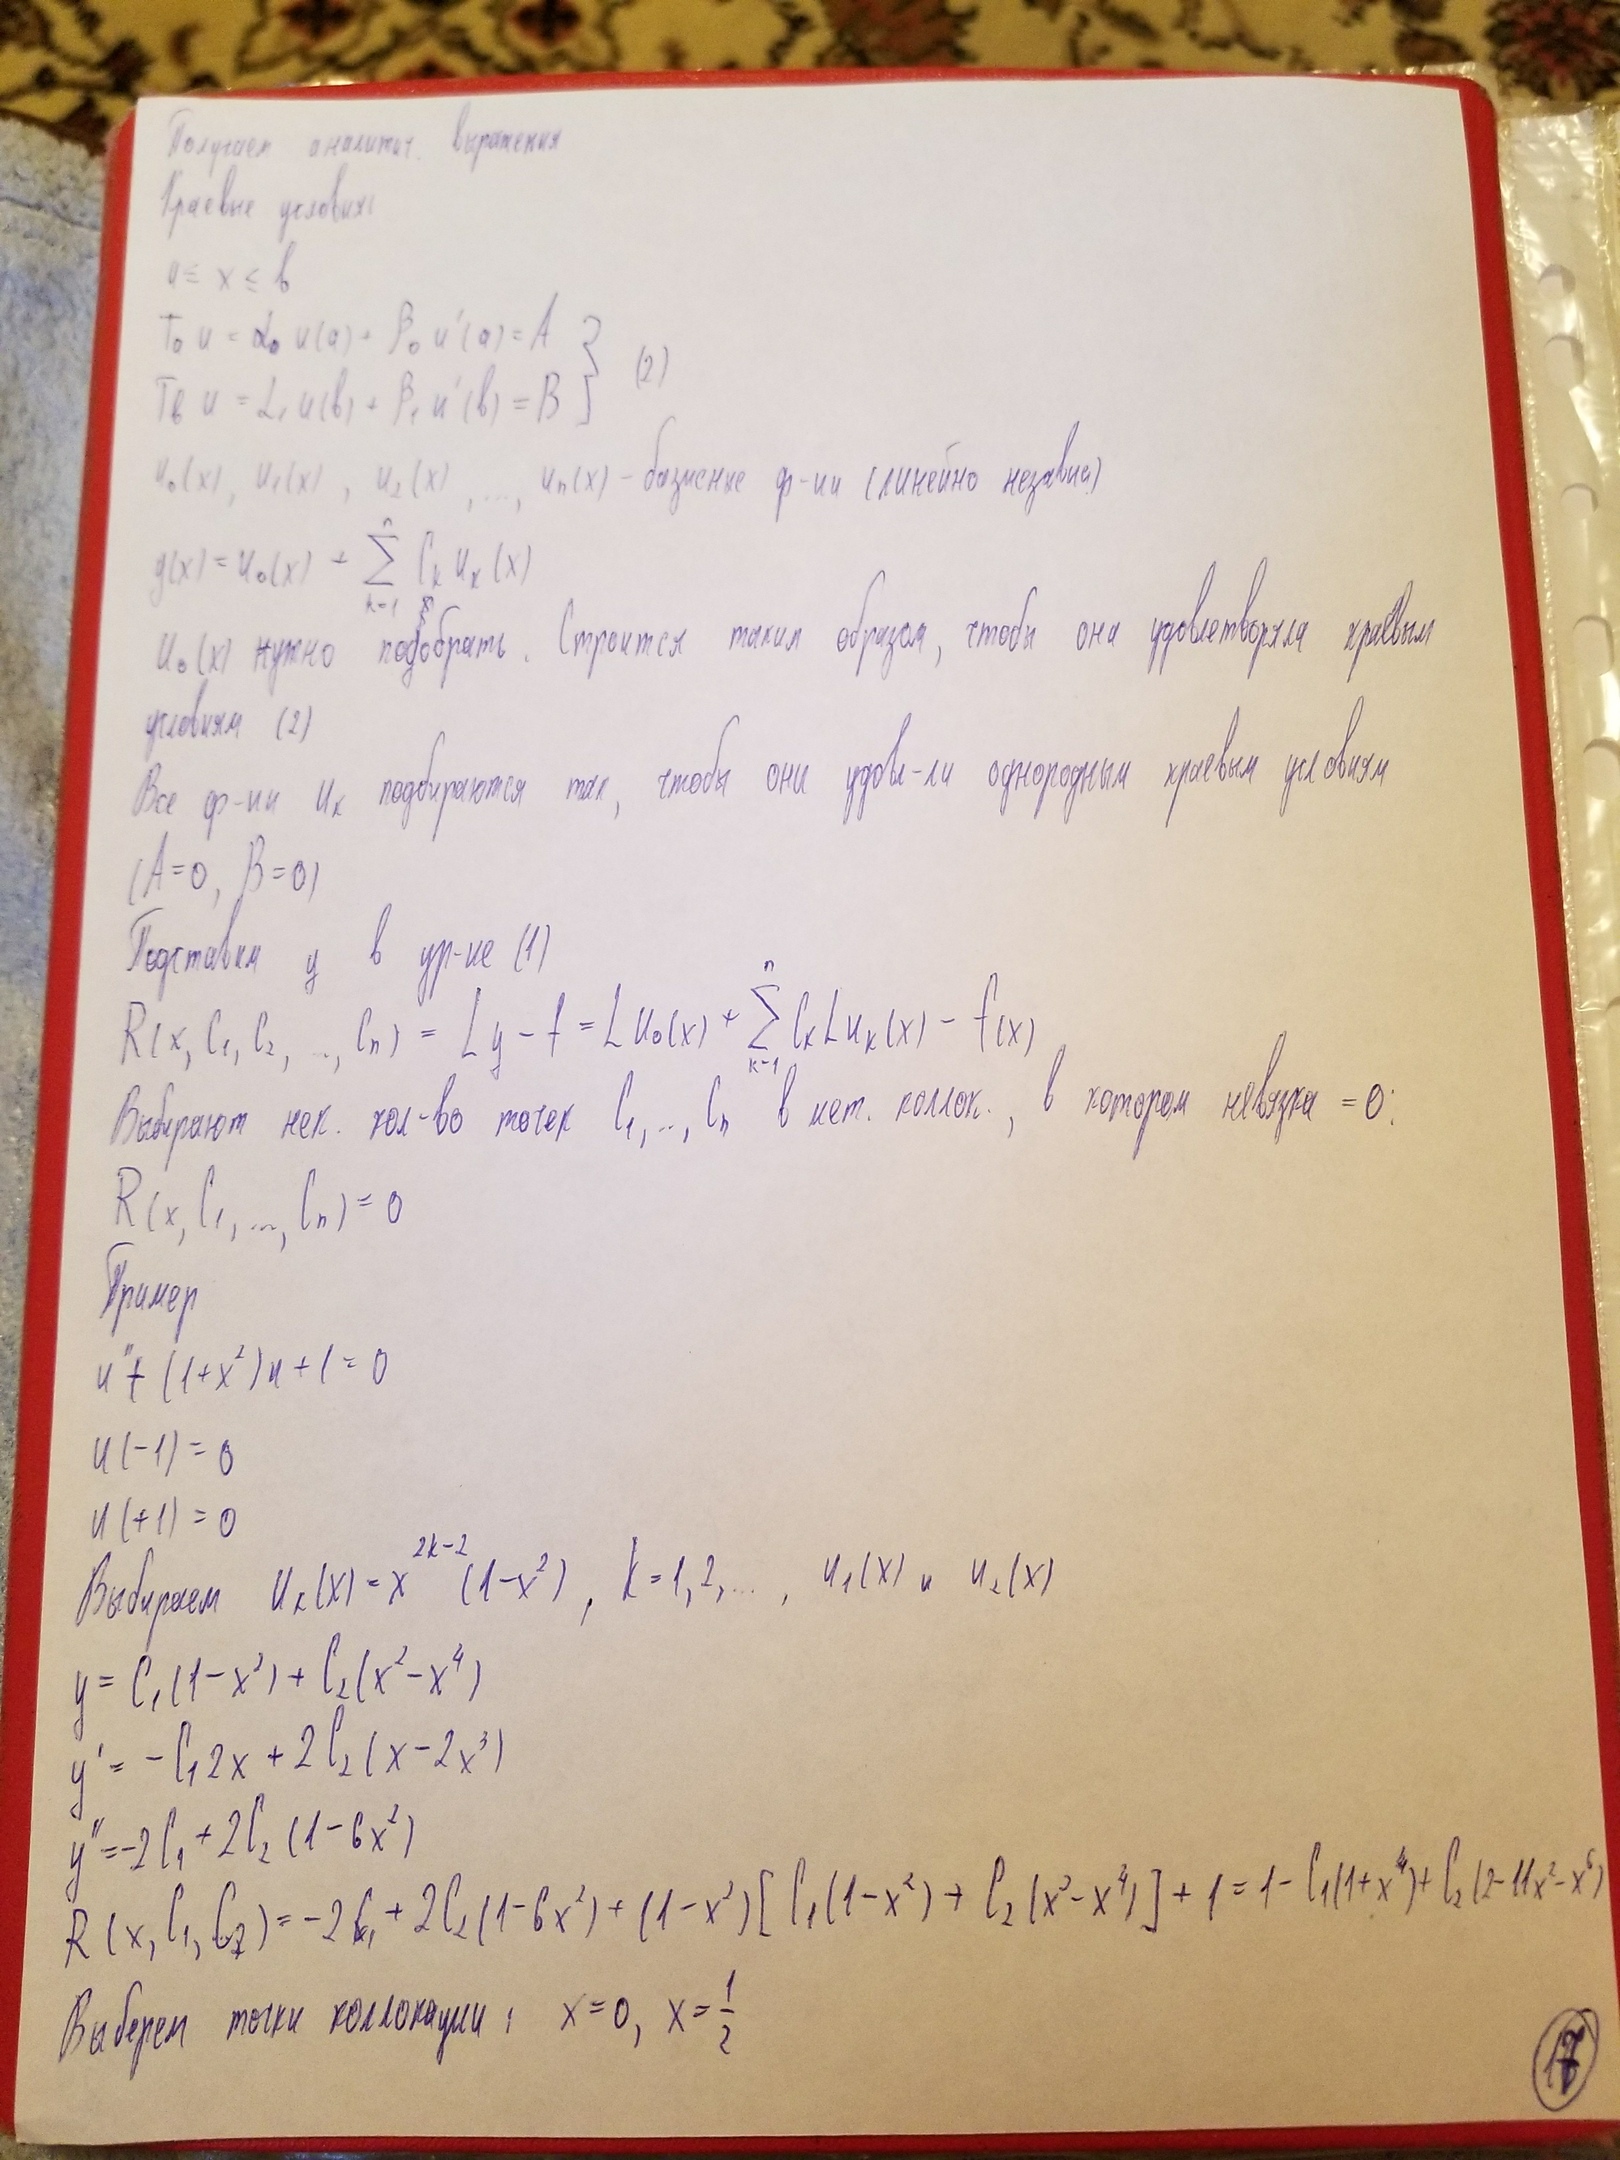 Получаем аналитич. выражения
Краевые условия:
a ≤ x ≤ b
Γ₀ u = α₀ u(a) + β₀ u'(a) = A
Γв u = α₁ u(b) + β₁ u'(b) = B } (2)
u₀(x), u₁(x), u₂(x), ..., uₙ(x) – базисные ф-ии (линейно независ.)
y(x) = u₀(x) + ∑ₖ₌₁ⁿ Cₖ uₖ(x)
u₀(x) нужно подобрать. Строится таким образом, чтобы она удовлетворяла краевым
условиям (2)
Все ф-ии uₖ подбираются так, чтобы они удовл-ли однородным краевым условиям
(A=0, B=0)
Подставим y в ур-ие (1)
R(x, C₁, C₂, ..., Cₙ) = Ly – f = Lu₀(x) + ∑ₖ₌₁ⁿ CₖLuₖ(x) – f(x)
Выбирают нек. кол-во точек C₁, .., Cₙ в мет. коллок., в котором невязка = 0:
R(x, C₁, ..., Cₙ) = 0
Пример
u'' + (1+x²)u + 1 = 0
u(-1) = 0
u(+1) = 0
Выбираем uₖ(x) = x²ᵏ⁻²(1–x²), k = 1, 2, ..., u₁(x) и u₂(x)
y = C₁(1–x²) + C₂(x²–x⁴)
y' = –C₁2x + 2C₂(x–2x³)
y'' = –2C₁ + 2C₂(1–6x²)
R(x, C₁, C₂) = –2C₁ + 2C₂(1–6x²) + (1–x²)[C₁(1–x²) + C₂(x²–x⁴)] + 1 = 1 – C₁(1+x⁴) + C₂(2–11x²–x⁶)
Выберем точки коллокации: x=0, x=1/2